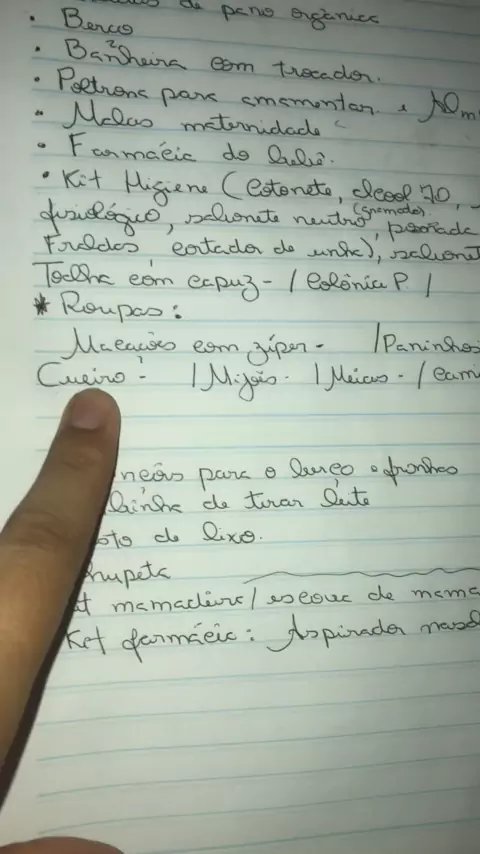 de pano orgânica
• Berço
• Banheira com trocador.
• Poltrona para amamentar e Alm
• Malas maternidade
• Farmácia do bebê.
• Kit Higiene (Cotonete, álcool 70,
fisiológico, sabonete neutro (granado), pomada
Fraldas cortador de unha), sabonet
Toalha com capuz - / Colônia P. /
* Roupas:
Macacões com zíper - / Paninhos
Cueiro? / Mijões - / Meias - /
para o berço e fronhas
de tirar leite
de lixo.
hupeta
mamadeira / escova de mama
Kit farmácia: Aspirador nasa